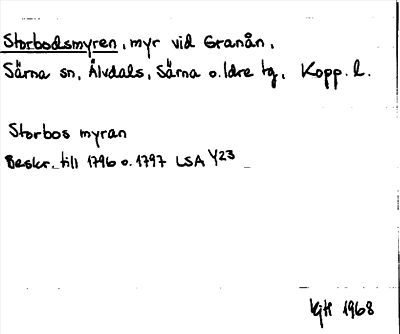 Storbodsmyren, myr vid Granån,
Särna sn, Älvdals, Särna o. Idre tg, Kopp. l.
Storbos myran
Beskr. till 1796 o. 1797 LSA Y23
1968